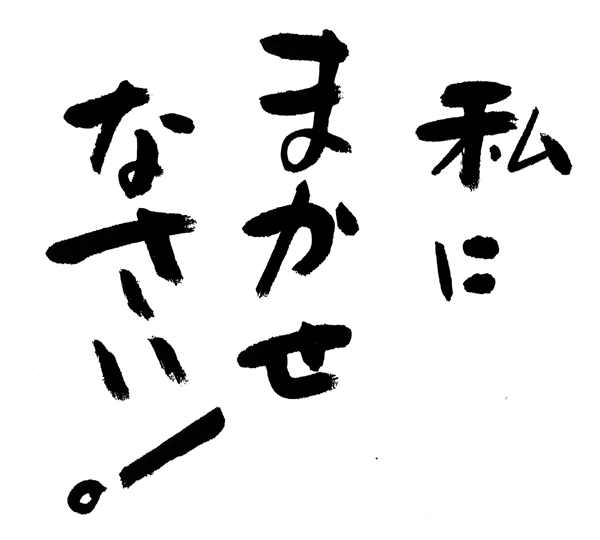 私に
まかせ
なさい!